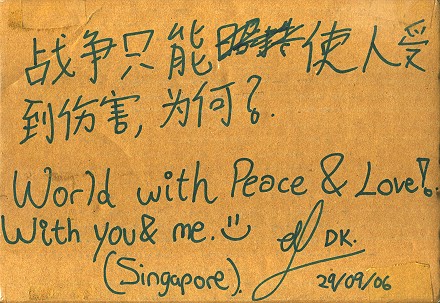 战争只能使人受
到伤害,为何?
World with Peace & Love!
With you & me. :)
DK.
(Singapore).
29/09/06